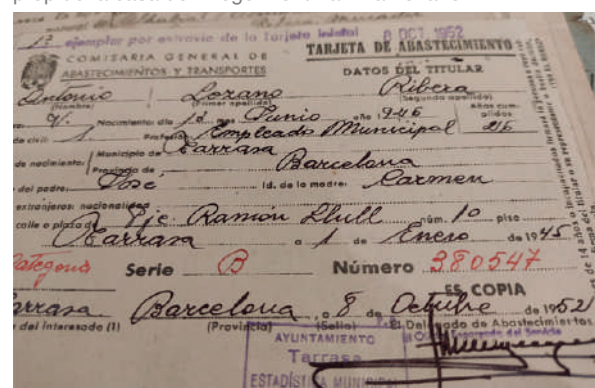 1º ejemplar por extravío de la tarjeta 8 OCT. 1952
COMISARIA GENERAL DE TARJETA DE ABASTECIMIENTO
ABASTECIMIENTOS Y TRANSPORTES DATOS DEL TITULAR
Antonio Lozano Ribera
(Nombre) (Primer apellido) (Segundo apellido)
V. Nacimiento: día 12 mes Junio año Años cumplidos
de civil: 1 Profesión Empleado Municipal 26
de nacimiento: Municipio de Tarrasa
Provincia de Barcelona
del padre: José Id. de la madre: Carmen
extranjeros: nacionalidad
calle o plaza de Pje. Ramón Llull núm. 10 piso
Tarrasa a 1 de Enero de 1945
Categoría Serie B Número 380547
ES COPIA
Tarrasa Barcelona, a 8 de Octubre de 1952
del interesado (1) (Provincia) (Sello) El Delegado de Abastecimientos
AYUNTAMIENTO
Tarrasa
ESTADÍSTICA MUNICIPAL